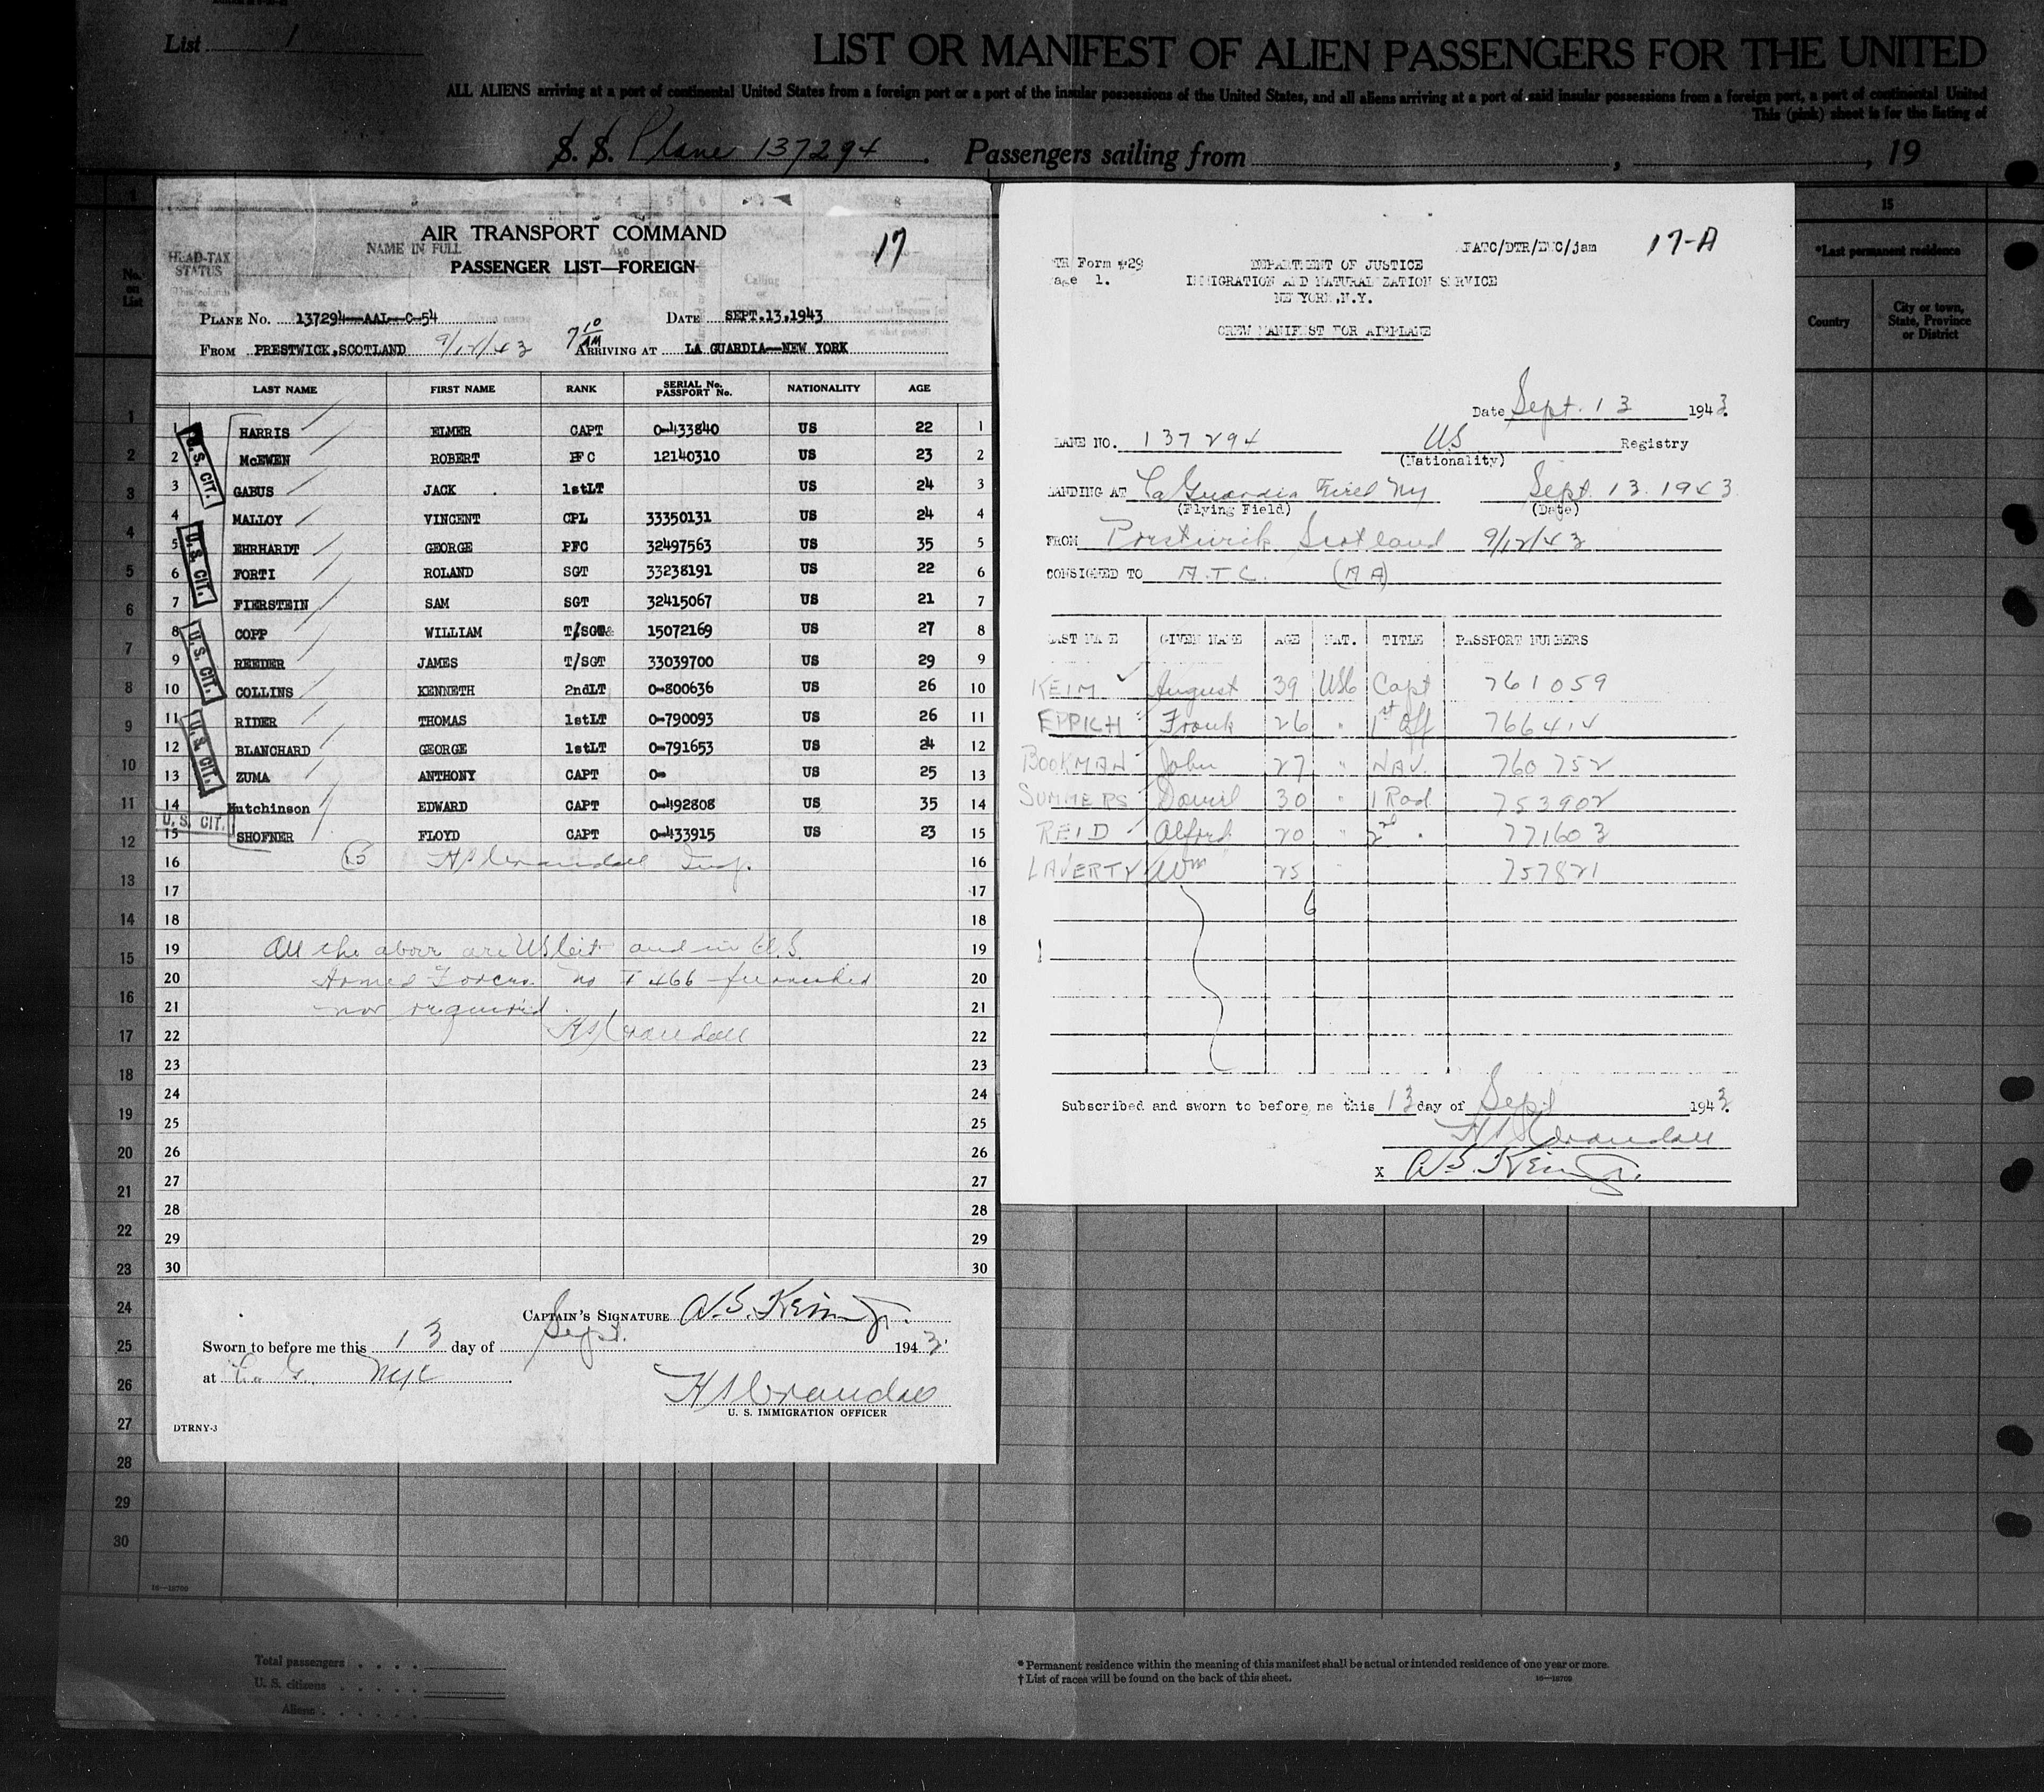 List 1
LIST OR MANIFEST OF ALIEN PASSENGERS FOR THE UNITED
ALL ALIENS arriving at a port of continental United States from a foreign port or a port of the insular possessions of the United States, and all aliens arriving at a port of said insular possessions from a foreign port, a port of continental United
This (pink) sheet is for the listing of
S. S. Plane 137294. Passengers sailing from , , 19
AIR TRANSPORT COMMAND
PASSENGER LIST—FOREIGN
17
HEAD-TAX STATUS
NAME IN FULL
Age
Sex
Calling
No. on List
PLANE NO. 137294—AAL—C-54 DATE SEPT.13,1943
FROM PRESTWICK,SCOTLAND 9/12/43 7 10 AM ARRIVING AT LA GUARDIA—NEW YORK
LAST NAME FIRST NAME RANK SERIAL No. PASSPORT No. NATIONALITY AGE
1 HARRIS ELMER CAPT 0-433840 US 22 1
2 McEWEN ROBERT PFC 12140310 US 23 2
3 GABUS JACK . 1stLT US 24 3
4 MALLOY VINCENT CPL 33350131 US 24 4
5 EHRHARDT GEORGE PFC 32497563 US 35 5
6 FORTI ROLAND SGT 33238191 US 22 6
7 FIERSTEIN SAM SGT 32415067 US 21 7
8 COPP WILLIAM T/SGT 15072169 US 27 8
9 REEDER JAMES T/SGT 33039700 US 29 9
10 COLLINS KENNETH 2ndLT 0-800636 US 26 10
11 RIDER THOMAS 1stLT 0-790093 US 26 11
12 BLANCHARD GEORGE 1stLT 0-791653 US 24 12
13 ZUMA ANTHONY CAPT 0- US 25 13
14 Hutchinson EDWARD CAPT 0-492808 US 35 14
15 SHOFNER FLOYD CAPT 0-433915 US 23 15
U.S. CIT.
U.S. CIT.
U.S. CIT.
U.S. CIT.
U.S. CIT.
16 15 HSCrandall Insp. 16
17 17
18 18
19 All the above are US Cit and in U.S. 19
20 Armed Forces. no I 466 furnished 20
21 nor required. 21
22 HSCrandall 22
23 23
24 24
25 25
26 26
27 27
28 28
29 29
30 30
CAPTAIN'S SIGNATURE A.S. Keim Jr.
Sworn to before me this 13 day of Sept. 1943.
at L. G. NYC
HSCrandall
U. S. IMMIGRATION OFFICER
DTRNY-3
FATC/DTR/ENC/jam 17-A
TR Form #29
age 1.
DEPARTMENT OF JUSTICE
IMMIGRATION AND NATURALIZATION SERVICE
NEW YORK,N.Y.
CREW MANIFEST FOR AIRPLANE
Date Sept. 13 1943
LANE NO. 137294 US Registry
(Nationality)
LANDING AT La Guardia Field NY Sept. 13. 1943
(Flying Field) (Date)
FROM Prestwick Scotland 9/12/43
CONSIGNED TO A.T.C. (AA)
LAST NAME GIVEN NAME AGE NAT. TITLE PASSPORT NUMBERS
KEIM August 39 USC Capt 761059
EPPICH Frank 26 " 1st Off 766414
BOOKMAN John 27 " NAV. 760752
SUMMERS 30 " 1 Rad 753902
REID Alford 20 " 2nd " 771603
LAVERTY Wm 25 " 757821
6
Subscribed and sworn to before me this 13 day of Sept 1943.
HSCrandall
X A.S. Keim Jr.
15
*Last permanent residence
Country
City or town, State, Province or District
1
2
3
4
5
6
7
8
9
10
11
12
13
14
15
16
17
18
19
20
21
22
23
24
25
26
27
28
29
30
16—18709
Total passengers . . . .
U. S. citizens . . . . .
Aliens . . . . . .
* Permanent residence within the meaning of this manifest shall be actual or intended residence of one year or more.
† List of races will be found on the back of this sheet.
16—18709